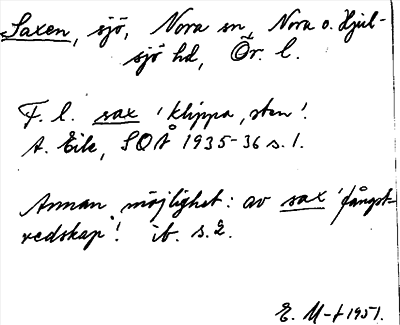 Saxen, sjö, Nora sn, Nora o. Hjul-
sjö hd, Ör. l.
F. l. sax 'klippa, sten'.
A. Eile, SOÅ 1935-36 s. 1.
Annan möjlighet: av sax 'fångst-
redskap'. ib. s. 2.
E. M-t 1951.